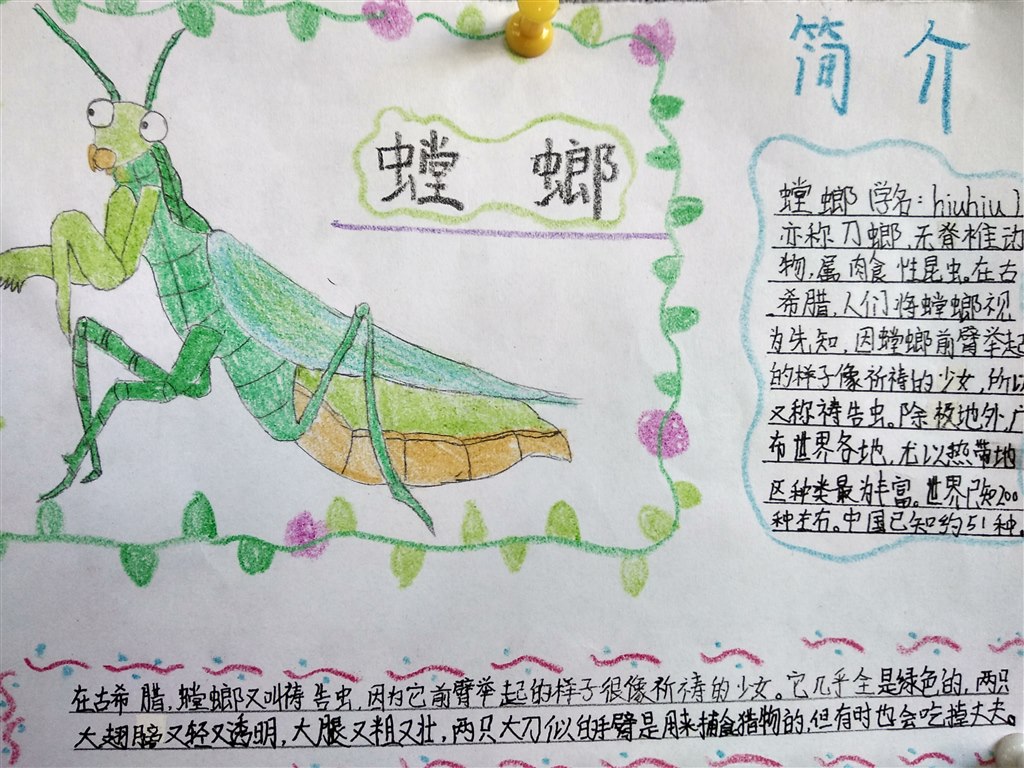 简介
螳螂
螳螂(学名:hiuhiu)
亦称刀螂,无脊椎动
物,属肉食性昆虫。在古
希腊,人们将螳螂视
为先知,因螳螂前臂举起
的样子像祈祷的少女,所以
又称祷告虫。除极地外,广
布世界各地,尤以热带地
区种类最为丰富。世界已知200
种左右。中国已知约51种。
在古希腊,螳螂又叫祷告虫,因为它前臂举起的样子很像祈祷的少女。它几乎全是绿色的,两只
大翅膀又轻又透明,大腿又粗又壮,两只大刀似的手臂是用来捕食猎物的,但有时也会吃掉丈夫。